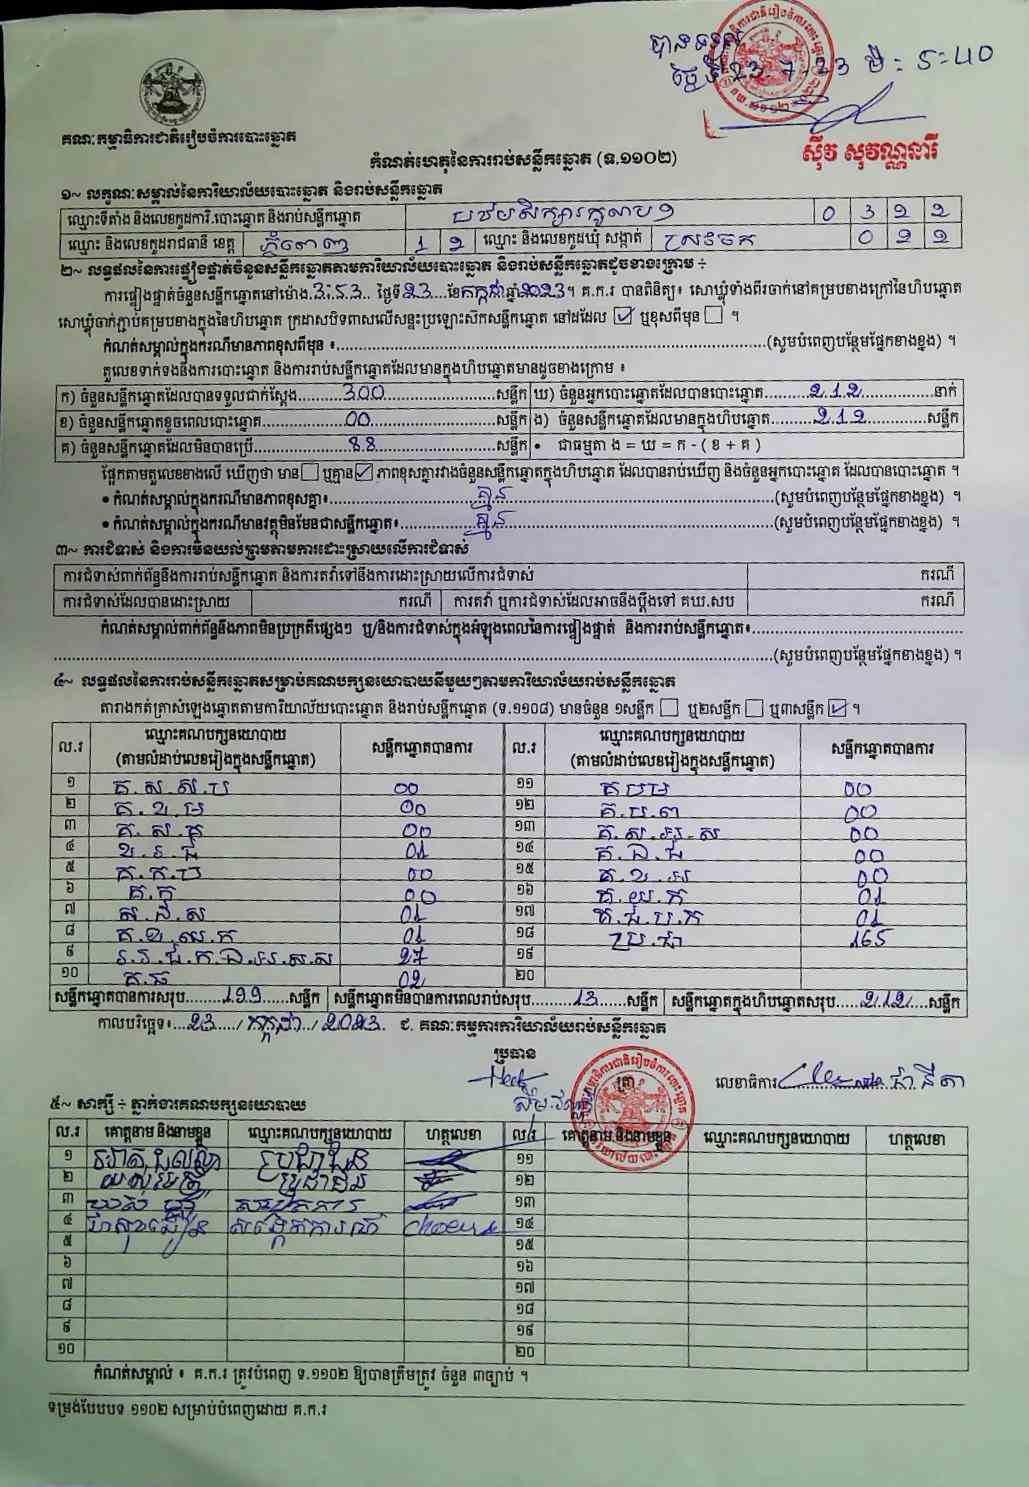 បានទទួល
ថ្ងៃទី 23 7-23 ម៉ៈ 5:40
គណៈកម្មាធិការជាតិរៀបចំការបោះឆ្នោត
ស៊ីវ សុវណ្ណនារី
កំណត់ហេតុនៃការរាប់សន្លឹកឆ្នោត (ទ.១១០២)
១~ លក្ខណៈសម្គាល់នៃការិយាល័យបោះឆ្នោត និងរាប់សន្លឹកឆ្នោត
ឈ្មោះទីតាំង និងលេខកូដការិ.បោះឆ្នោត និងរាប់សន្លឹកឆ្នោត 0 3 2 2
ឈ្មោះ និងលេខកូដរាជធានី ខេត្ត ភ្នំពេញ 1 2 ឈ្មោះ និងលេខកូដឃុំ សង្កាត់ ស្រះចក 0 2 2
២~ លទ្ធផលនៃការផ្ទៀងផ្ទាត់ចំនួនសន្លឹកឆ្នោតតាមការិយាល័យបោះឆ្នោត និងរាប់សន្លឹកឆ្នោតដូចខាងក្រោម ÷
ការផ្ទៀងផ្ទាត់ចំនួនសន្លឹកឆ្នោតនៅម៉ោង 3:53 ថ្ងៃទី 23 ខែ កក្កដា ឆ្នាំ 2023 ។ គ.ក.រ បានពិនិត្យ៖ សោឃ្លុំទាំងពីរចាក់នៅគម្របខាងក្រៅនៃហិបឆ្នោត
សោឃ្លុំចាក់ភ្ជាប់គម្របខាងក្នុងនៃហិបឆ្នោត ក្រដាសបិទពាសលើសន្ទះប្រឡោះស៊កសន្លឹកឆ្នោត នៅដដែល ☑ ឬខុសពីមុន ☐ ។
កំណត់សម្គាល់ក្នុងករណីមានភាពខុសពីមុន ៖ (សូមបំពេញបន្ថែមផ្នែកខាងខ្នង) ។
តួលេខទាក់ទងនឹងការបោះឆ្នោត និងការរាប់សន្លឹកឆ្នោតដែលមានក្នុងហិបឆ្នោតមានដូចខាងក្រោម ៖
ក) ចំនួនសន្លឹកឆ្នោតដែលបានទទួលជាក់ស្តែង 300 សន្លឹក ឃ) ចំនួនអ្នកបោះឆ្នោតដែលបានបោះឆ្នោត 212 នាក់
ខ) ចំនួនសន្លឹកឆ្នោតខូចពេលបោះឆ្នោត 00 សន្លឹក ង) ចំនួនសន្លឹកឆ្នោតដែលមានក្នុងហិបឆ្នោត 212 សន្លឹក
គ) ចំនួនសន្លឹកឆ្នោតដែលមិនបានប្រើ 88 សន្លឹក • ជាធម្មតា ង = ឃ = ក - ( ខ + គ )
ផ្អែកតាមតួលេខខាងលើ ឃើញថា មាន ☐ ឬគ្មាន ☑ ភាពខុសគ្នារវាងចំនួនសន្លឹកឆ្នោតក្នុងហិបឆ្នោត ដែលបានរាប់ឃើញ និងចំនួនអ្នកបោះឆ្នោត ដែលបានបោះឆ្នោត ។
• កំណត់សម្គាល់ក្នុងករណីមានភាពខុសគ្នា៖ គ្មាន (សូមបំពេញបន្ថែមផ្នែកខាងខ្នង) ។
• កំណត់សម្គាល់ក្នុងករណីមានវត្ថុមិនមែនជាសន្លឹកឆ្នោត៖ គ្មាន (សូមបំពេញបន្ថែមផ្នែកខាងខ្នង) ។
៣~ ការជំទាស់ និងការមិនយល់ព្រមតាមការដោះស្រាយលើការជំទាស់
ការជំទាស់ពាក់ព័ន្ធនឹងការរាប់សន្លឹកឆ្នោត និងការតវ៉ាទៅនឹងការដោះស្រាយលើការជំទាស់ ករណី
ការជំទាស់ដែលបានដោះស្រាយ ករណី ការតវ៉ា ឬការជំទាស់ដែលអាចនឹងប្តឹងទៅ គឃ.សប ករណី
កំណត់សម្គាល់ពាក់ព័ន្ធនឹងភាពមិនប្រក្រតីផ្សេងៗ ឬ/និងការជំទាស់ក្នុងអំឡុងពេលនៃការផ្ទៀងផ្ទាត់ និងការរាប់សន្លឹកឆ្នោត៖
(សូមបំពេញបន្ថែមផ្នែកខាងខ្នង) ។
៤~ លទ្ធផលនៃការរាប់សន្លឹកឆ្នោតសម្រាប់គណបក្សនយោបាយនីមួយៗតាមការិយាល័យរាប់សន្លឹកឆ្នោត
តារាងកត់ត្រាសំឡេងឆ្នោតតាមការិយាល័យបោះឆ្នោត និងរាប់សន្លឹកឆ្នោត (ទ.១១០៨) មានចំនួន ១សន្លឹក ☐ ឬ២សន្លឹក ☐ ឬ៣សន្លឹក ☑ ។
ល.រ ឈ្មោះគណបក្សនយោបាយ (តាមលំដាប់លេខរៀងក្នុងសន្លឹកឆ្នោត) សន្លឹកឆ្នោតបានការ ល.រ ឈ្មោះគណបក្សនយោបាយ (តាមលំដាប់លេខរៀងក្នុងសន្លឹកឆ្នោត) សន្លឹកឆ្នោតបានការ
១ គ.ស.ស.ប 00 ១១ គបម 00
២ គ.ខ.ម 00 ១២ គ.ប.ព 00
៣ គ.ស.គ 00 ១៣ គ.ស.អ.ស 00
៤ ខ.រ.ជ 01 ១៤ គ.ឯ.ជ 00
៥ គ.ក.ប 00 ១៥ គ.ខ.អ 00
៦ គ.ក 00 ១៦ គ.យ.ក 01
៧ ស.ជ.ស 01 ១៧ គ.ជ.ប.ក 01
៨ គ.ខ.ឈ.ក 01 ១៨ ប្រ.ជា 165
៩ រ.រ.ជ.ក.ឯ.អ.ស.ស 27 ១៩
១០ គ.ធ 02 ២០
សន្លឹកឆ្នោតបានការសរុប 199 សន្លឹក សន្លឹកឆ្នោតមិនបានការពេលរាប់សរុប 13 សន្លឹក សន្លឹកឆ្នោតក្នុងហិបឆ្នោតសរុប 212 សន្លឹក
កាលបរិច្ឆេទ៖ 23 / កក្កដា / 2023 ជ. គណៈកម្មការការិយាល័យរាប់សន្លឹកឆ្នោត
ប្រធាន
ត្រា
លេខាធិការ
៥~ សាក្សី ÷ ភ្នាក់ងារគណបក្សនយោបាយ
ល.រ គោត្តនាម និងនាមខ្លួន ឈ្មោះគណបក្សនយោបាយ ហត្ថលេខា ល.រ គោត្តនាម និងនាមខ្លួន ឈ្មោះគណបក្សនយោបាយ ហត្ថលេខា
១ ប្រជាជន ១១
២ ប្រជាជន ១២
៣ ១៣
៤ សង្កេតការណ៍ ១៤
៥ ១៥
៦ ១៦
៧ ១៧
៨ ១៨
៩ ១៩
១០ ២០
កំណត់សម្គាល់ ៖ គ.ក.រ ត្រូវបំពេញ ទ.១១០២ ឱ្យបានត្រឹមត្រូវ ចំនួន ៣ច្បាប់ ។
ទម្រង់បែបបទ ១១០២ សម្រាប់បំពេញដោយ គ.ក.រ